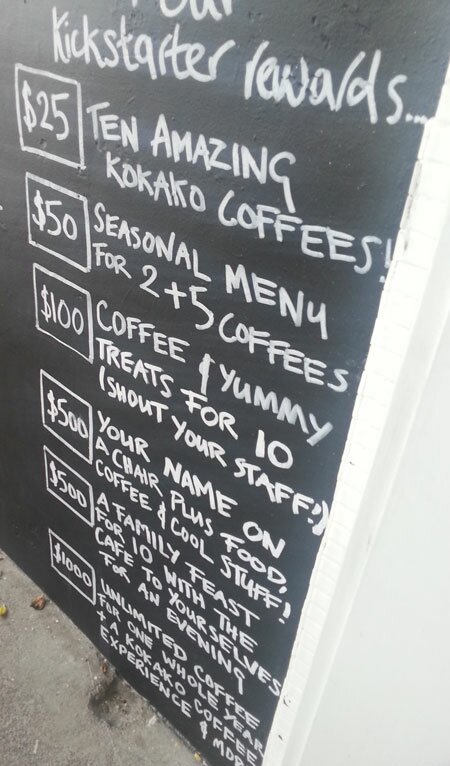 our
Kickstarter rewards...
$25 TEN AMAZING
KOKAKO COFFEES!
$50 SEASONAL MENU
FOR 2 + 5 COFFEES
$100 COFFEE & YUMMY
TREATS FOR 10
(SHOUT YOUR STAFF!)
$500 YOUR NAME ON
A CHAIR, PLUS FOOD,
COFFEE & COOL STUFF!
$500 A FAMILY FEAST
FOR 10 WITH THE
CAFE TO YOURSELVES
FOR AN EVENING
$1000 UNLIMITED COFFEE
FOR ONE WHOLE YEAR
+ A KOKAKO COFFEE
EXPERIENCE & MORE